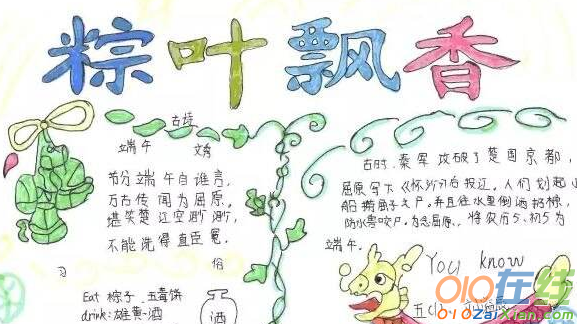 粽叶飘香
古诗
端午
文秀
节分端午自谁言,
万古传闻为屈原。
堪笑楚江空渺渺,
不能洗得直臣冤。
习 俗
Eat 粽子、五毒饼
drink: 雄黄酒
酒
古时,秦军攻破了楚国京都,
屈原写下《怀沙》后投江,人们划起小
船捞屈子之尸,并且往水里倒酒、扔粽,
防水兽咬尸。为念屈原,将农历5.初5为
端午。
You know
010在线
010ZaiXian.com